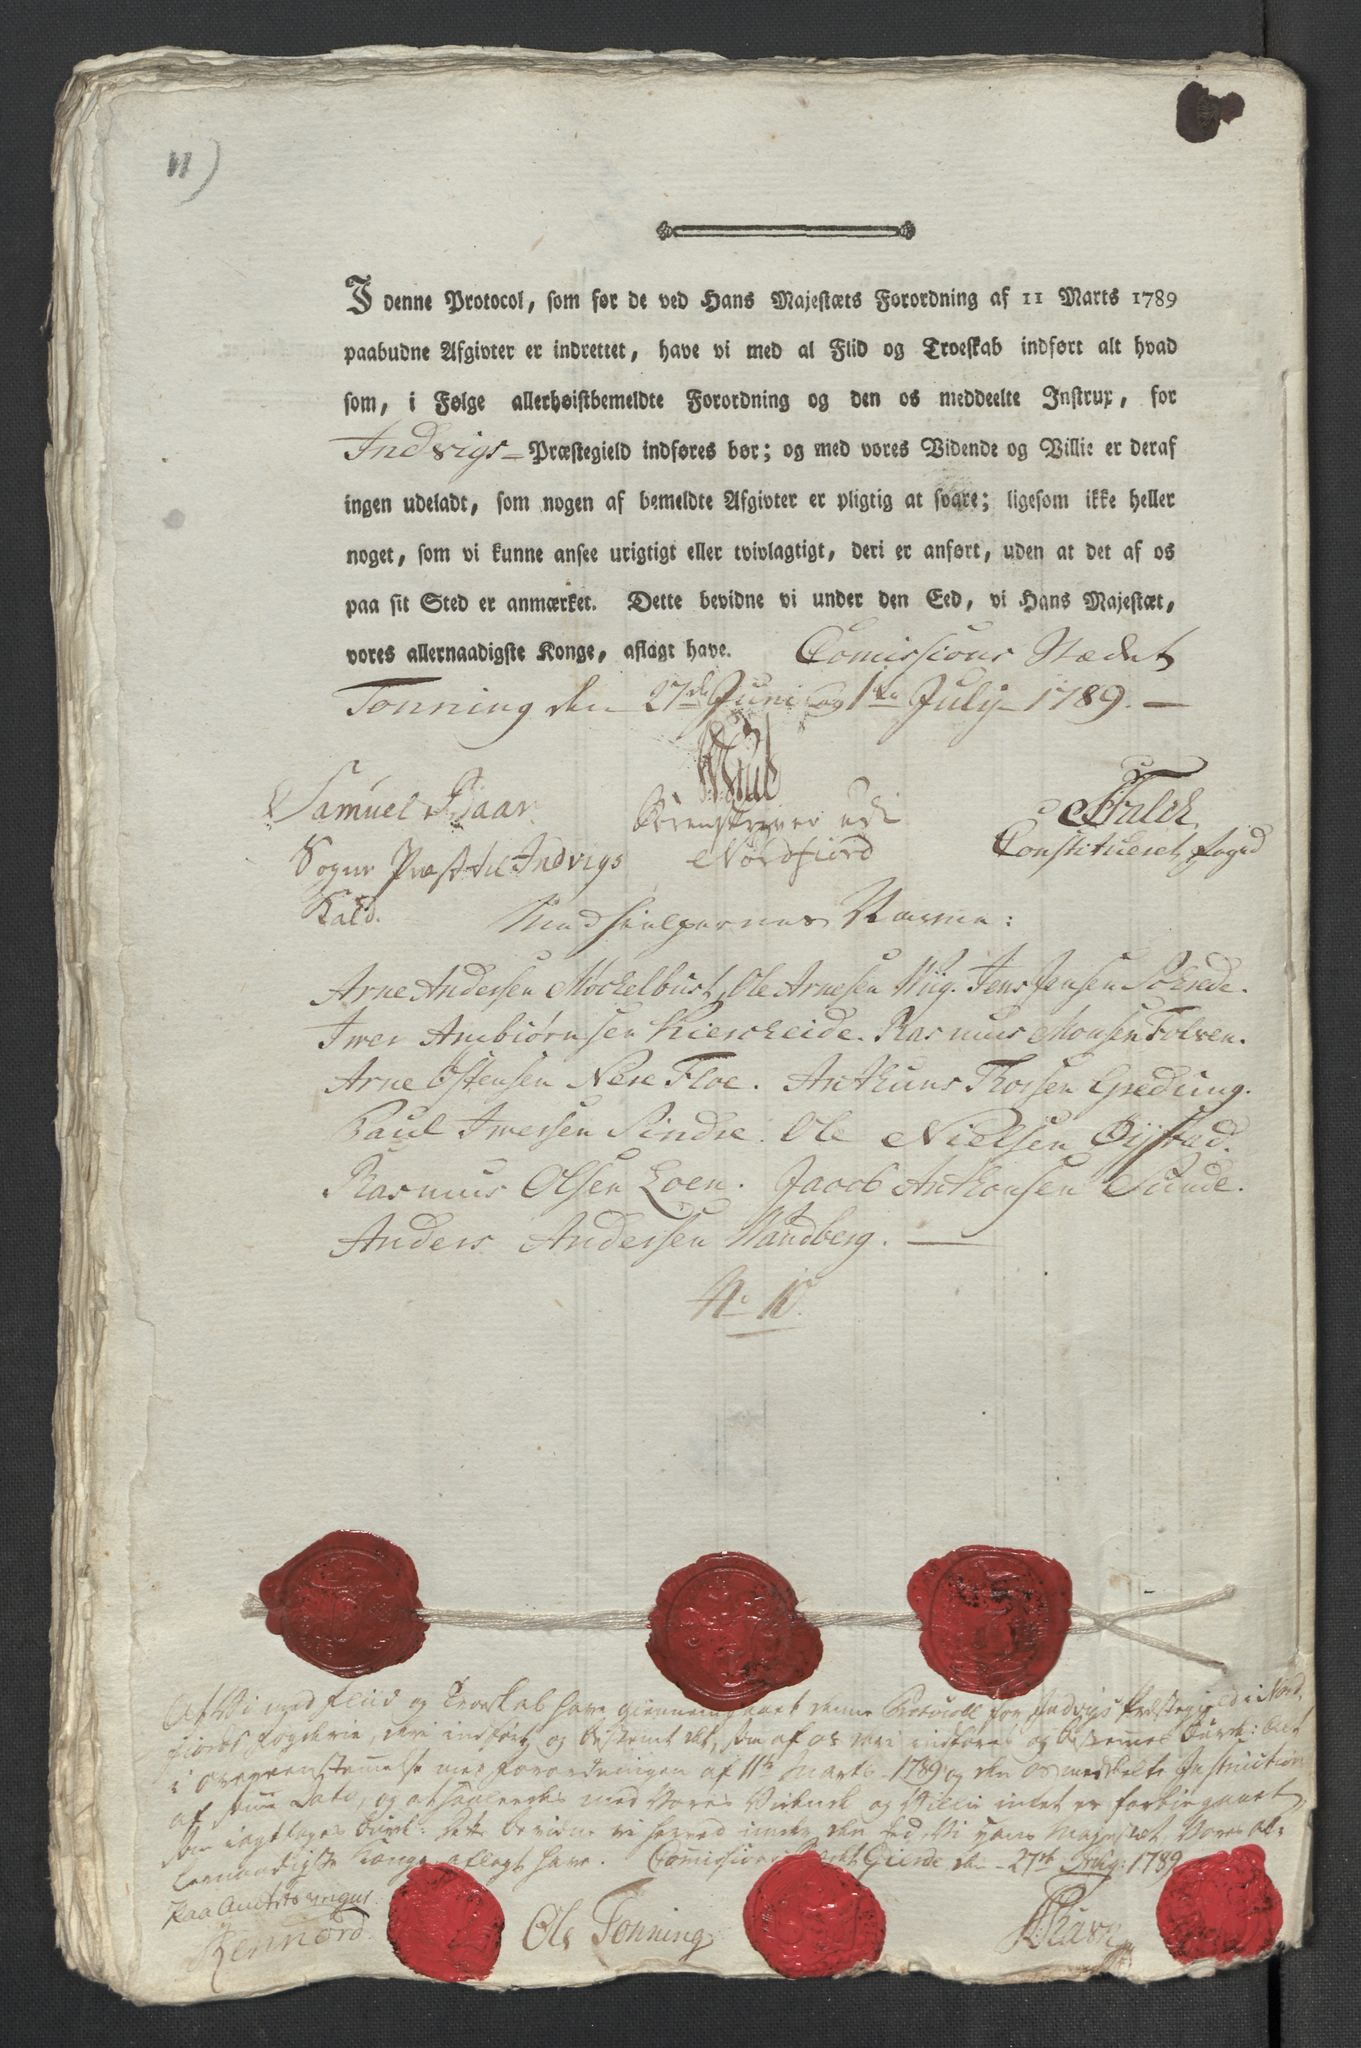 11)
I denne Protocol, som for de ved Hans Majestæts Forordning af 11 Marts 1789
paabudne Afgivter er indrettet, have vi med al Flid og Troeskab indført alt hvad
som, i Følge allerhøistbemeldte Forordning og den os meddeelte Instrux, for
Indvigs- Præstegield indføres bør; og med vores Vidende og Villie er deraf
ingen udeladt, som nogen af bemeldte Afgivter er pligtig at svare; ligesom ikke heller
noget, som vi kunne ansee urigtigt eller tvivlagtigt, deri er anført, uden at det af os
paa sit Sted er anmærket. Dette bevidne vi under den Eed, vi Hans Majestæt,
vores allernaadigste Konge, aflagt have. Comissions Stædet
Tonning den 27de Juni og 1te July 1789.
Samuel Baar
Sorenskriver udi Falck
Sogne Præst til Indvigs Nordfiord Constitueret fogid
Kald. Medhielpernes Navne:
Arne Andersen Mockelbust, Ole Arnesen Wiig. Jens Jensen Sckrede.
Iwer Ambiørnsen Kierckeide. Rasmus Monsen Tolven.
Arne Østensen Nere Floe. Anthuns Thorsen Greding.
Paul Iwersen Sindre. Ole Nielsen Øystad.
Rasmus Olsen Loen. Jacob Anthonsen Sunde.
Anders Andersen Wandberg.
At Vi med Fliid og Troeskab have giennemgaaet denne Protocoll for Indvigs Præstegield i Nord-
fiords Fogderie, deri indført og bestemt det, som af os deri indføres og bestemmes burde: alt
i overeenstemmelse med Forordningen af 11te Marts 1789 og den os meddelte Instruction
af samme Dato, og at saaledes med Vores Vidende og Villie intet er forbiegaaet
som iagttages burde: Dette bevidne vi herved under den Eed, Vi Hans Majestæt, Vores al-
lernaadigste Konge aflagt have. Comissions Stædet Gierde den 27de Aug: 1789
Paa Amtets vegne
Rennord. Ole Tonning